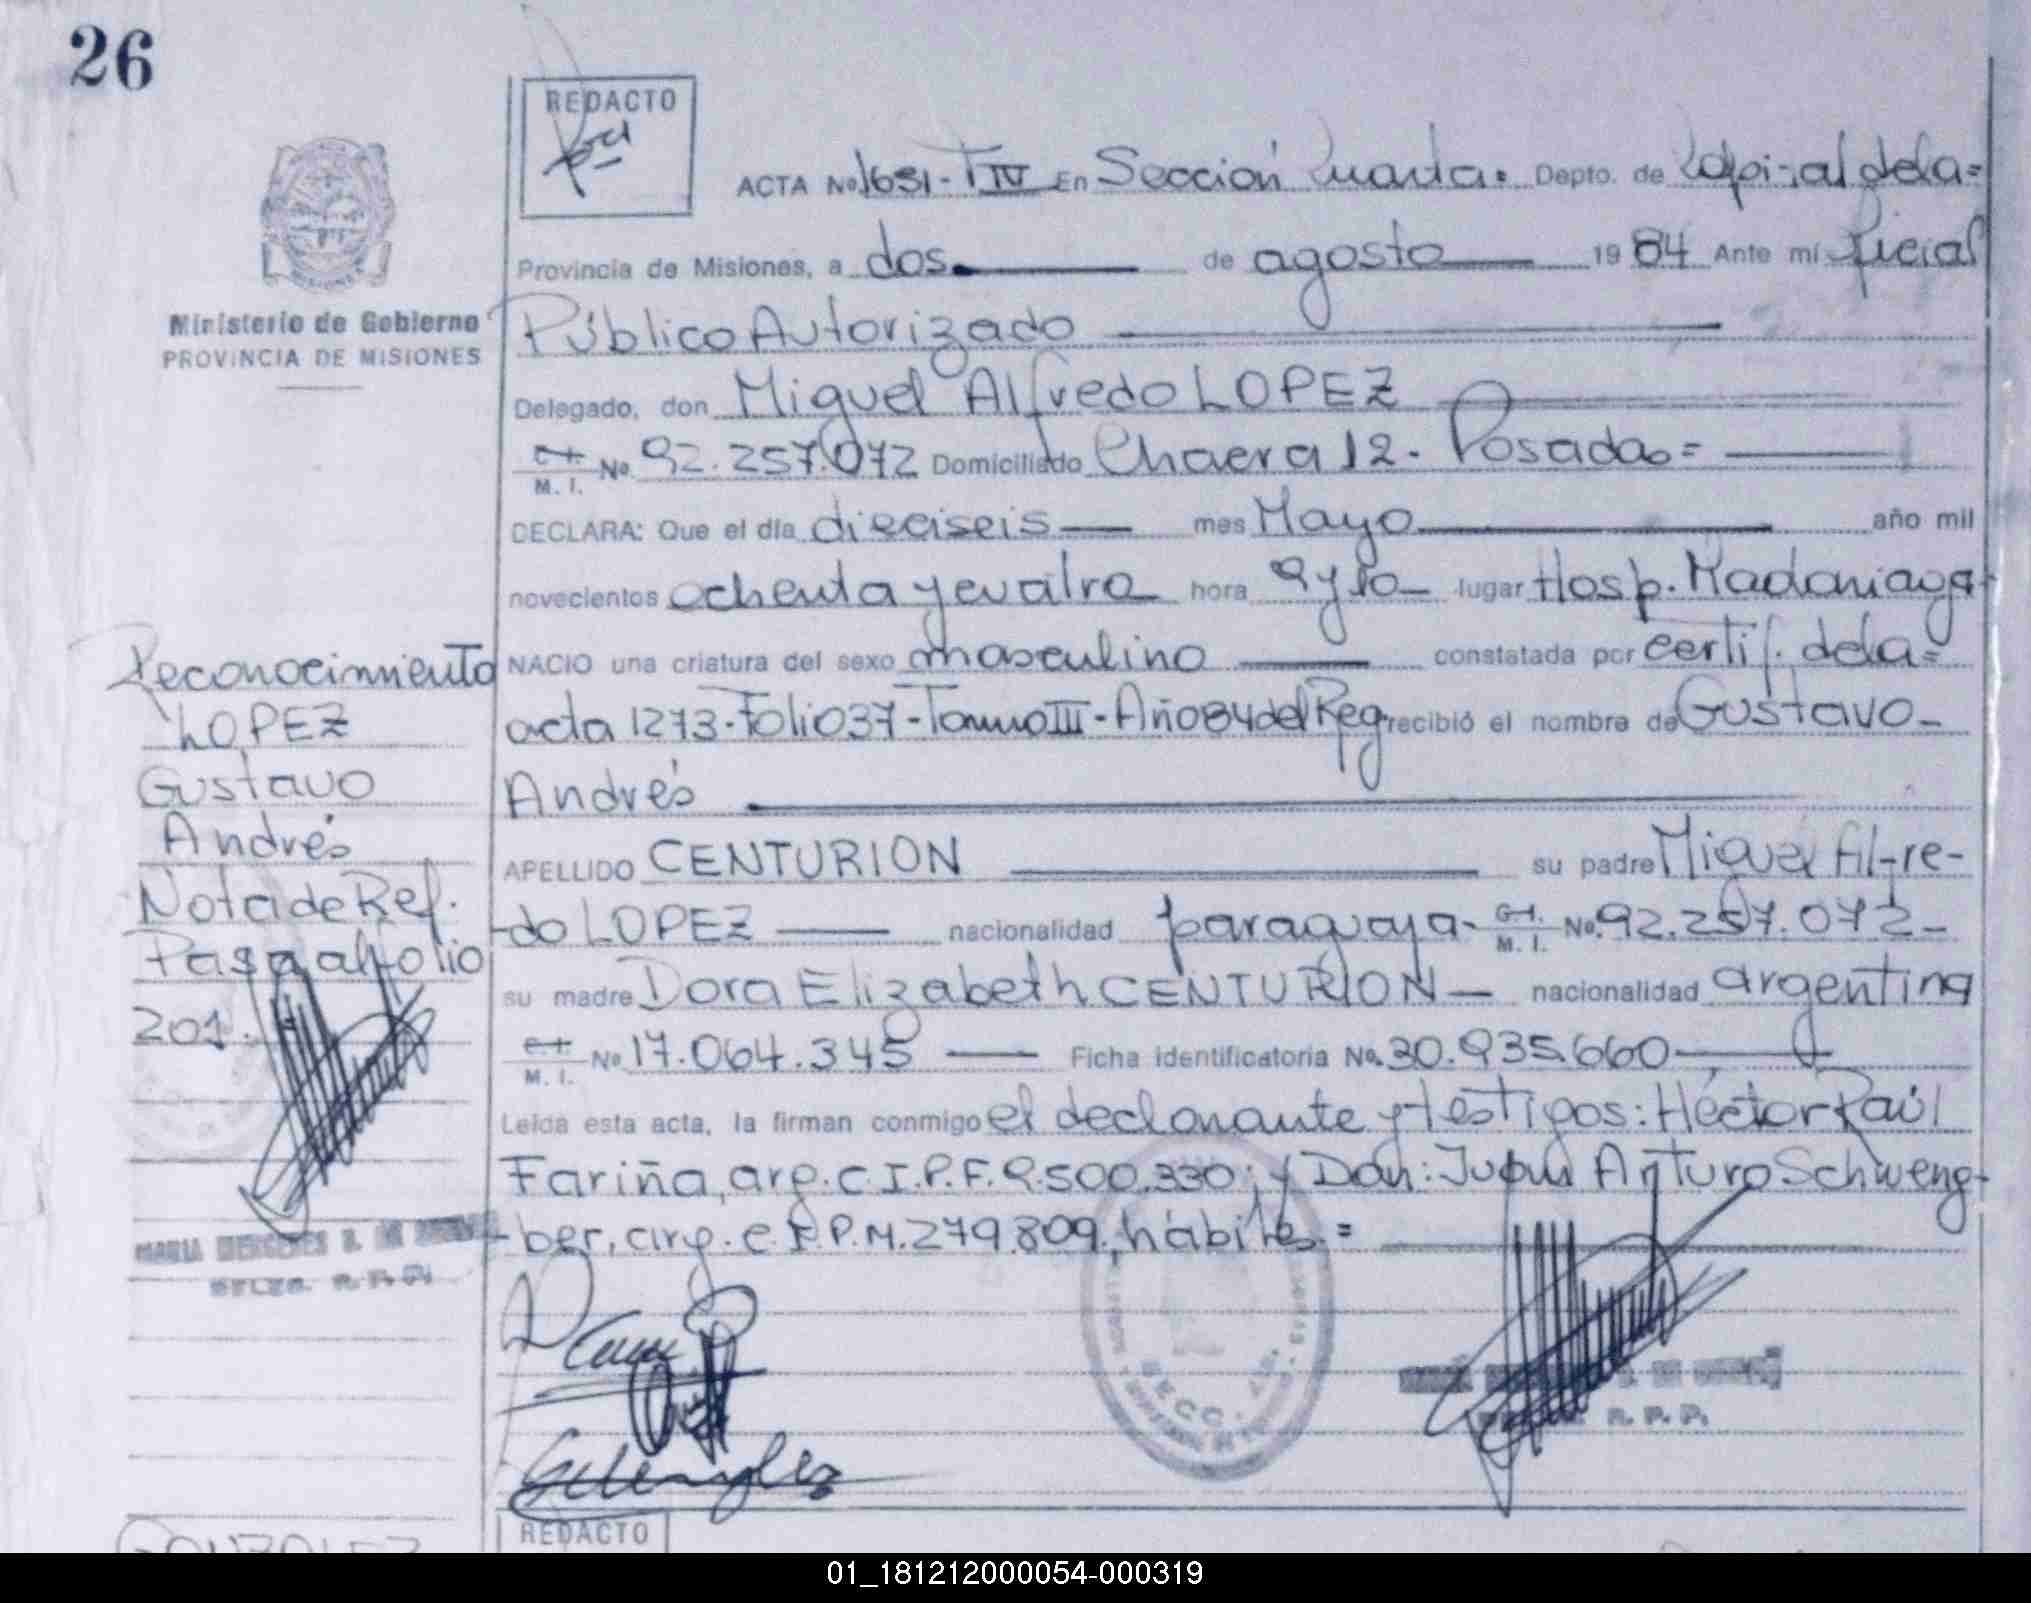 26
REDACTO
ACTA No 1631-T IV En Sección Cuarta. Depto. de Capital de la=
Provincia de Misiones, a dos de agosto 1984 Ante mí Oficial
Ministerio de Gobierno
PROVINCIA DE MISIONES
Público Autorizado
Delegado, don Miguel Alfredo LOPEZ
C.I. M. I. No. 92.257.072 Domiciliado Chacra 12. Posadas=
DECLARA: Que el día dieciseis mes Mayo año mil
novecientos ochenta y cuatro hora 9 y 10 lugar Hosp. Madariaga
NACIO una criatura del sexo masculino constatada por certif. de la=
acta 1273-Folio 37-Tomo III-Año 84 del Reg. recibió el nombre de Gustavo-
Andrés
APELLIDO CENTURION su padre Miguel Alfre-
-do LOPEZ nacionalidad paraguaya- C.I. M. I. No. 92.257.072-
su madre Dora Elizabeth CENTURION nacionalidad argentina
C.I. M. I. No 17.064.345 Ficha identificatoria No. 30.935.660
Leída esta acta, la firman conmigo el declarante y testigos: Héctor Raúl
Fariña, arg. C.I.P.F. 9.500.330; y Dan: Juan Arturo Schweng-
-ber, arg. C.I.P.M. 279.809, hábiles.=
Reconocimiento
LOPEZ
Gustavo
Andrés
Nota de Ref.
Pasa al folio
201.
MARIA MERCEDES
R. P. P.
SECC.
R. P. P.
GONZALEZ
REDACTO
01_181212000054-000319